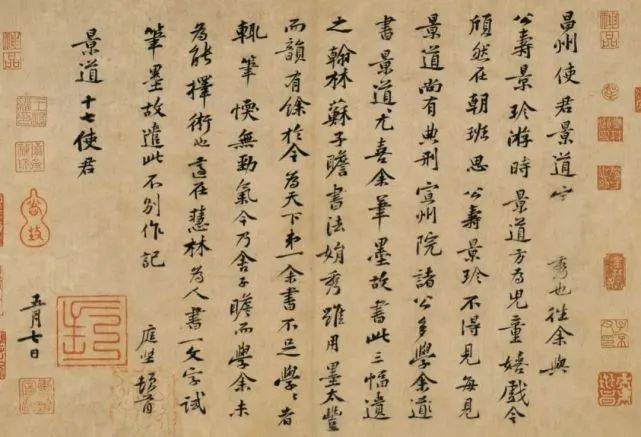 昌州使君景道 秀也往余與
公壽景珍游時景道方為兒童嬉戲今
頎然在朝班思公壽景珍不得見每見
景道尚有典刑宣州院諸公多學余道
書景道尤喜余筆墨故書此三幅遺
之翰林蘇子瞻書法娟秀雖用墨太豐
而韻有餘於今為天下弟一余書不足學〻者
輒筆愞無勁氣今乃舍子瞻而學余未
為能擇術也適在慧林為人書一文字試
筆墨故遣此不別作記 庭堅頓首
景道十七使君
五月七日